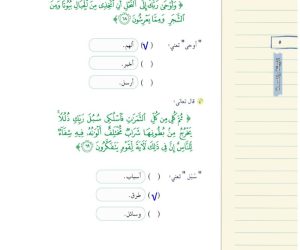 ﴿ وَأَوْحَىٰ رَبُّكَ إِلَى النَّحْلِ أَنِ اتَّخِذِي مِنَ الْجِبَالِ بُيُوتًا وَمِنَ
الشَّجَرِ وَمِمَّا يَعْرِشُونَ ٦٨ ﴾
" أوحى " تعني: (√) ألهم.
( ) أخبر.
( ) أرسل.
قال تعالى:
﴿ ثُمَّ كُلِي مِن كُلِّ الثَّمَرَاتِ فَاسْلُكِي سُبُلَ رَبِّكِ ذُلُلًا
يَخْرُجُ مِن بُطُونِهَا شَرَابٌ مُّخْتَلِفٌ أَلْوَانُهُ فِيهِ شِفَاءٌ
لِّلنَّاسِ إِنَّ فِي ذَٰلِكَ لَآيَةً لِّقَوْمٍ يَتَفَكَّرُونَ ٦٩ ﴾
" سُبُل " تعني: ( ) أسباب.
(√) طرق.
( ) وسائل.